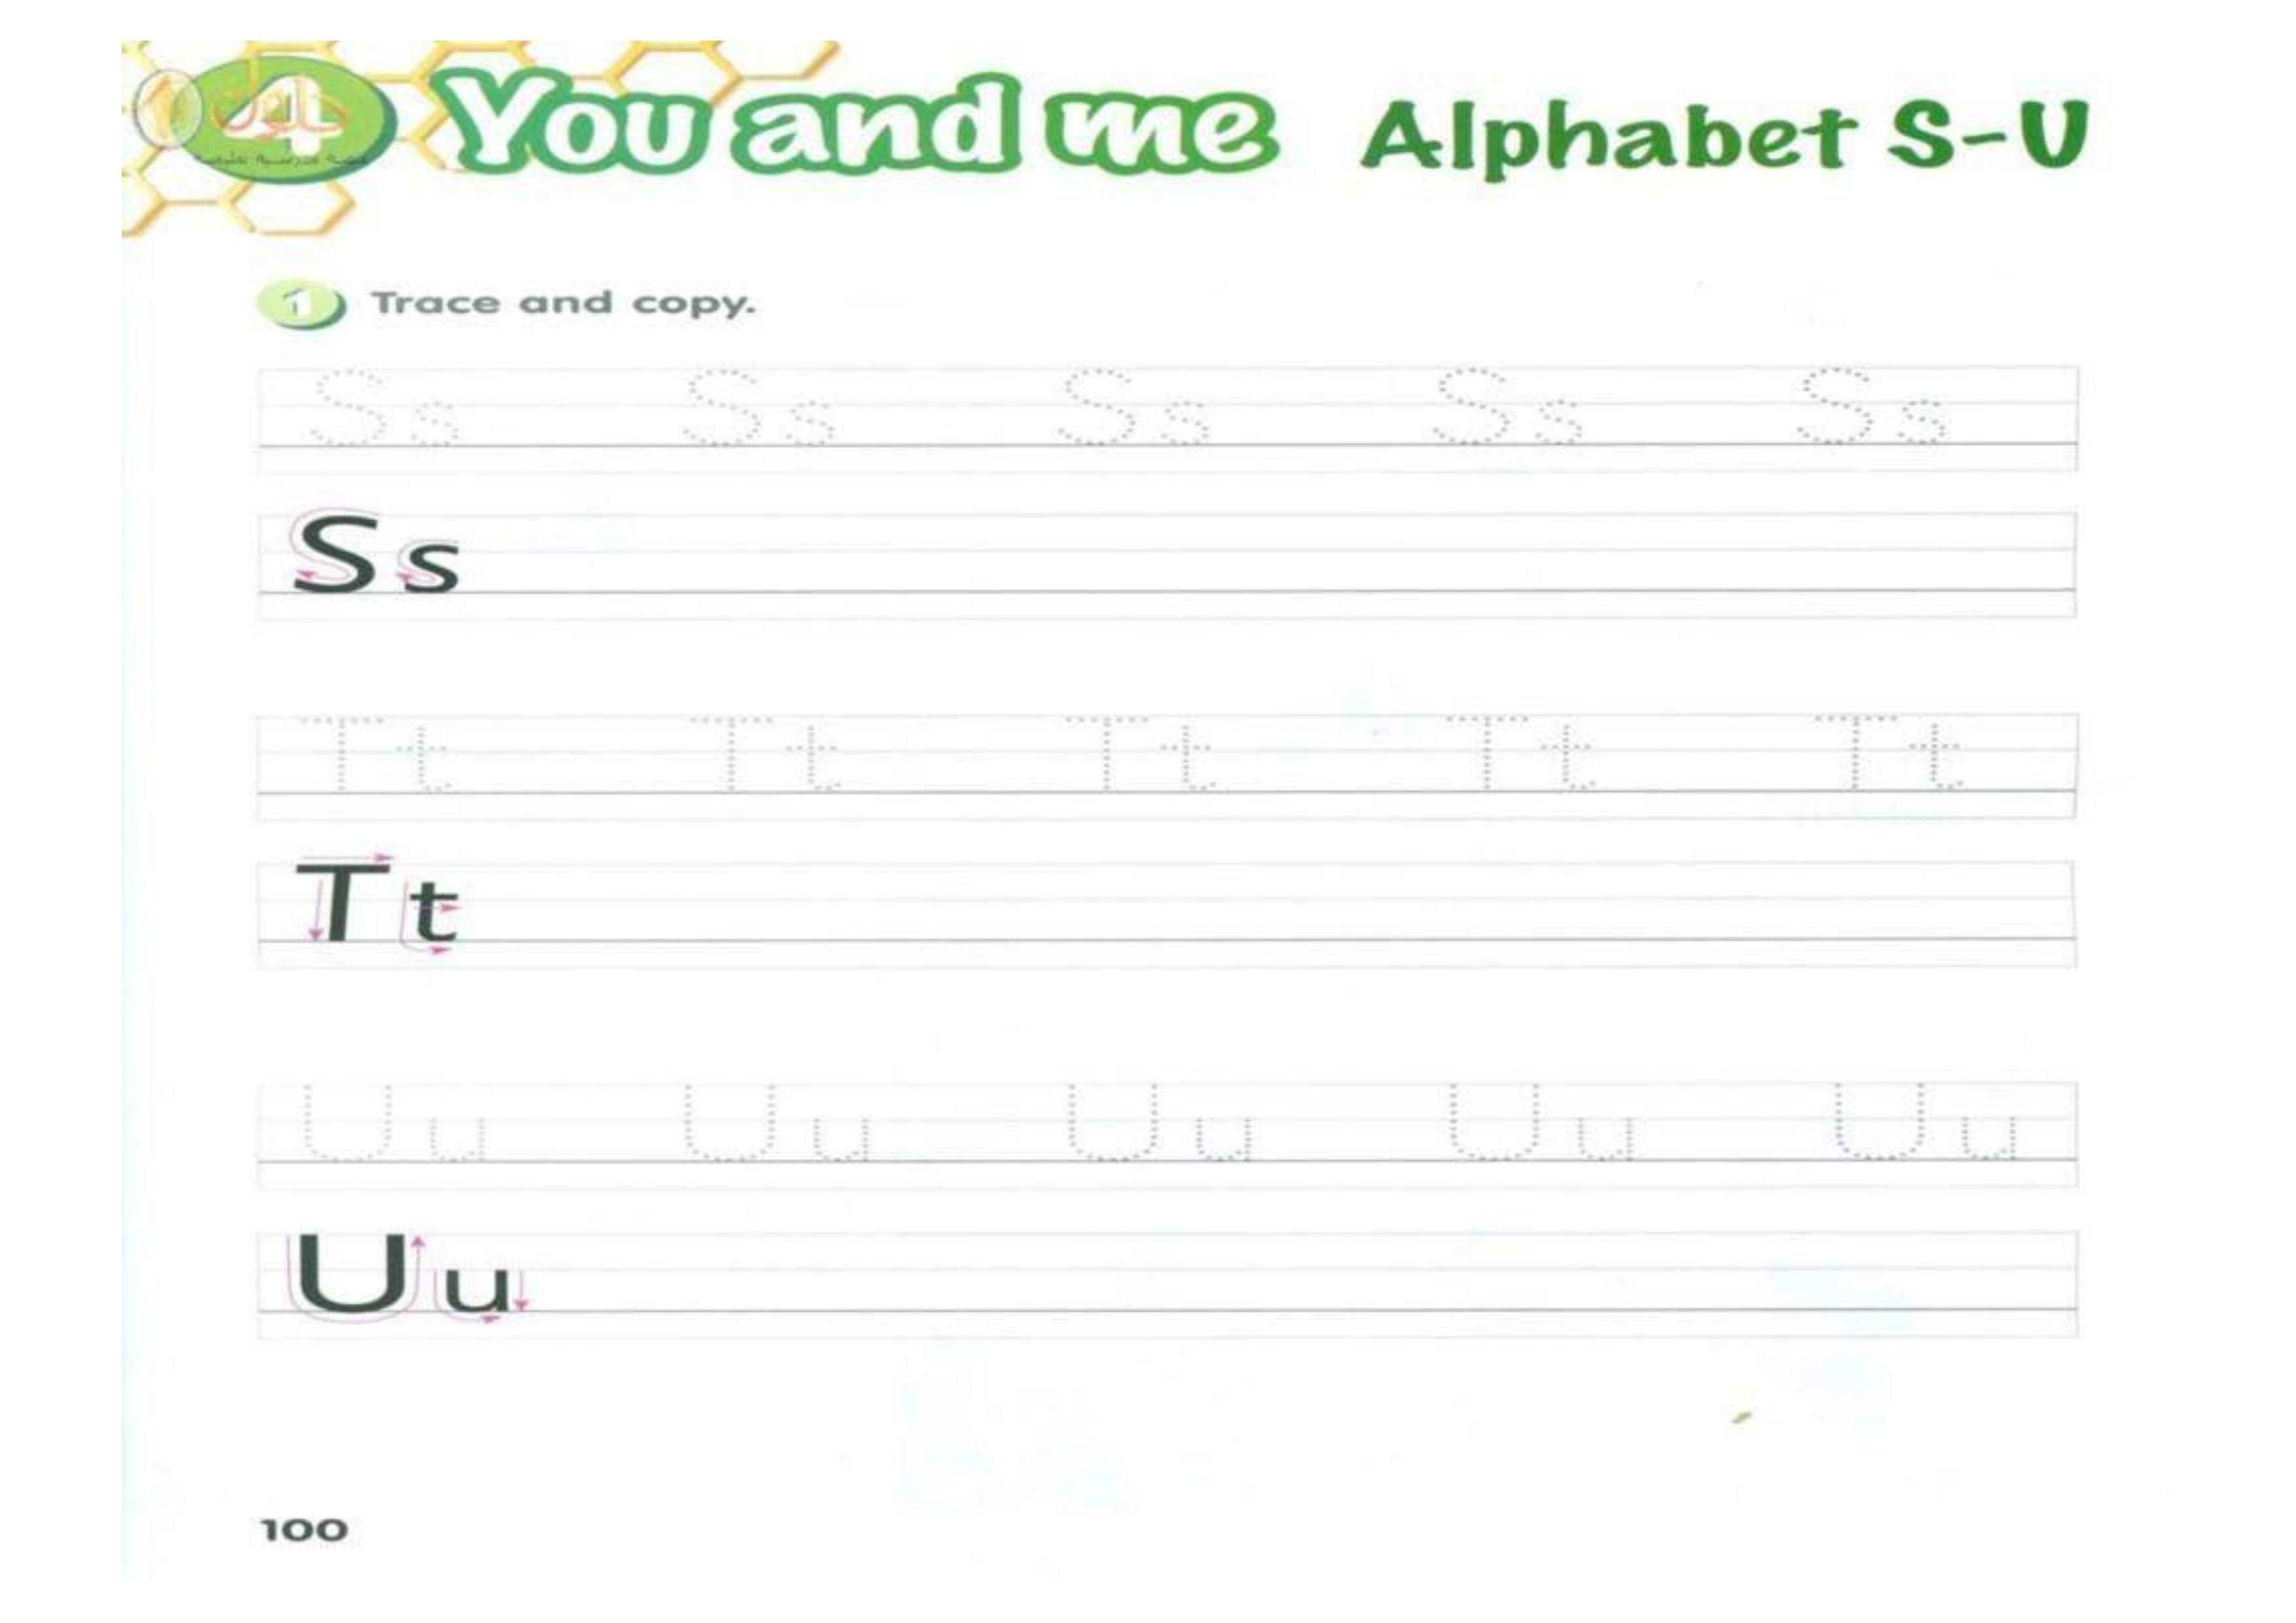 4 You and me Alphabet S-U
1 Trace and copy.
Ss Ss Ss Ss Ss
Ss
Tt Tt Tt Tt Tt
Tt
Uu Uu Uu Uu Uu
Uu
100